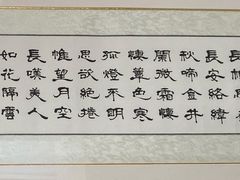 長相思
長安絡緯
秋啼金井
闌微霜悽
悽簟色寒
孤燈不明
思欲絕捲
帷望月空
長嘆美人
如花隔雲